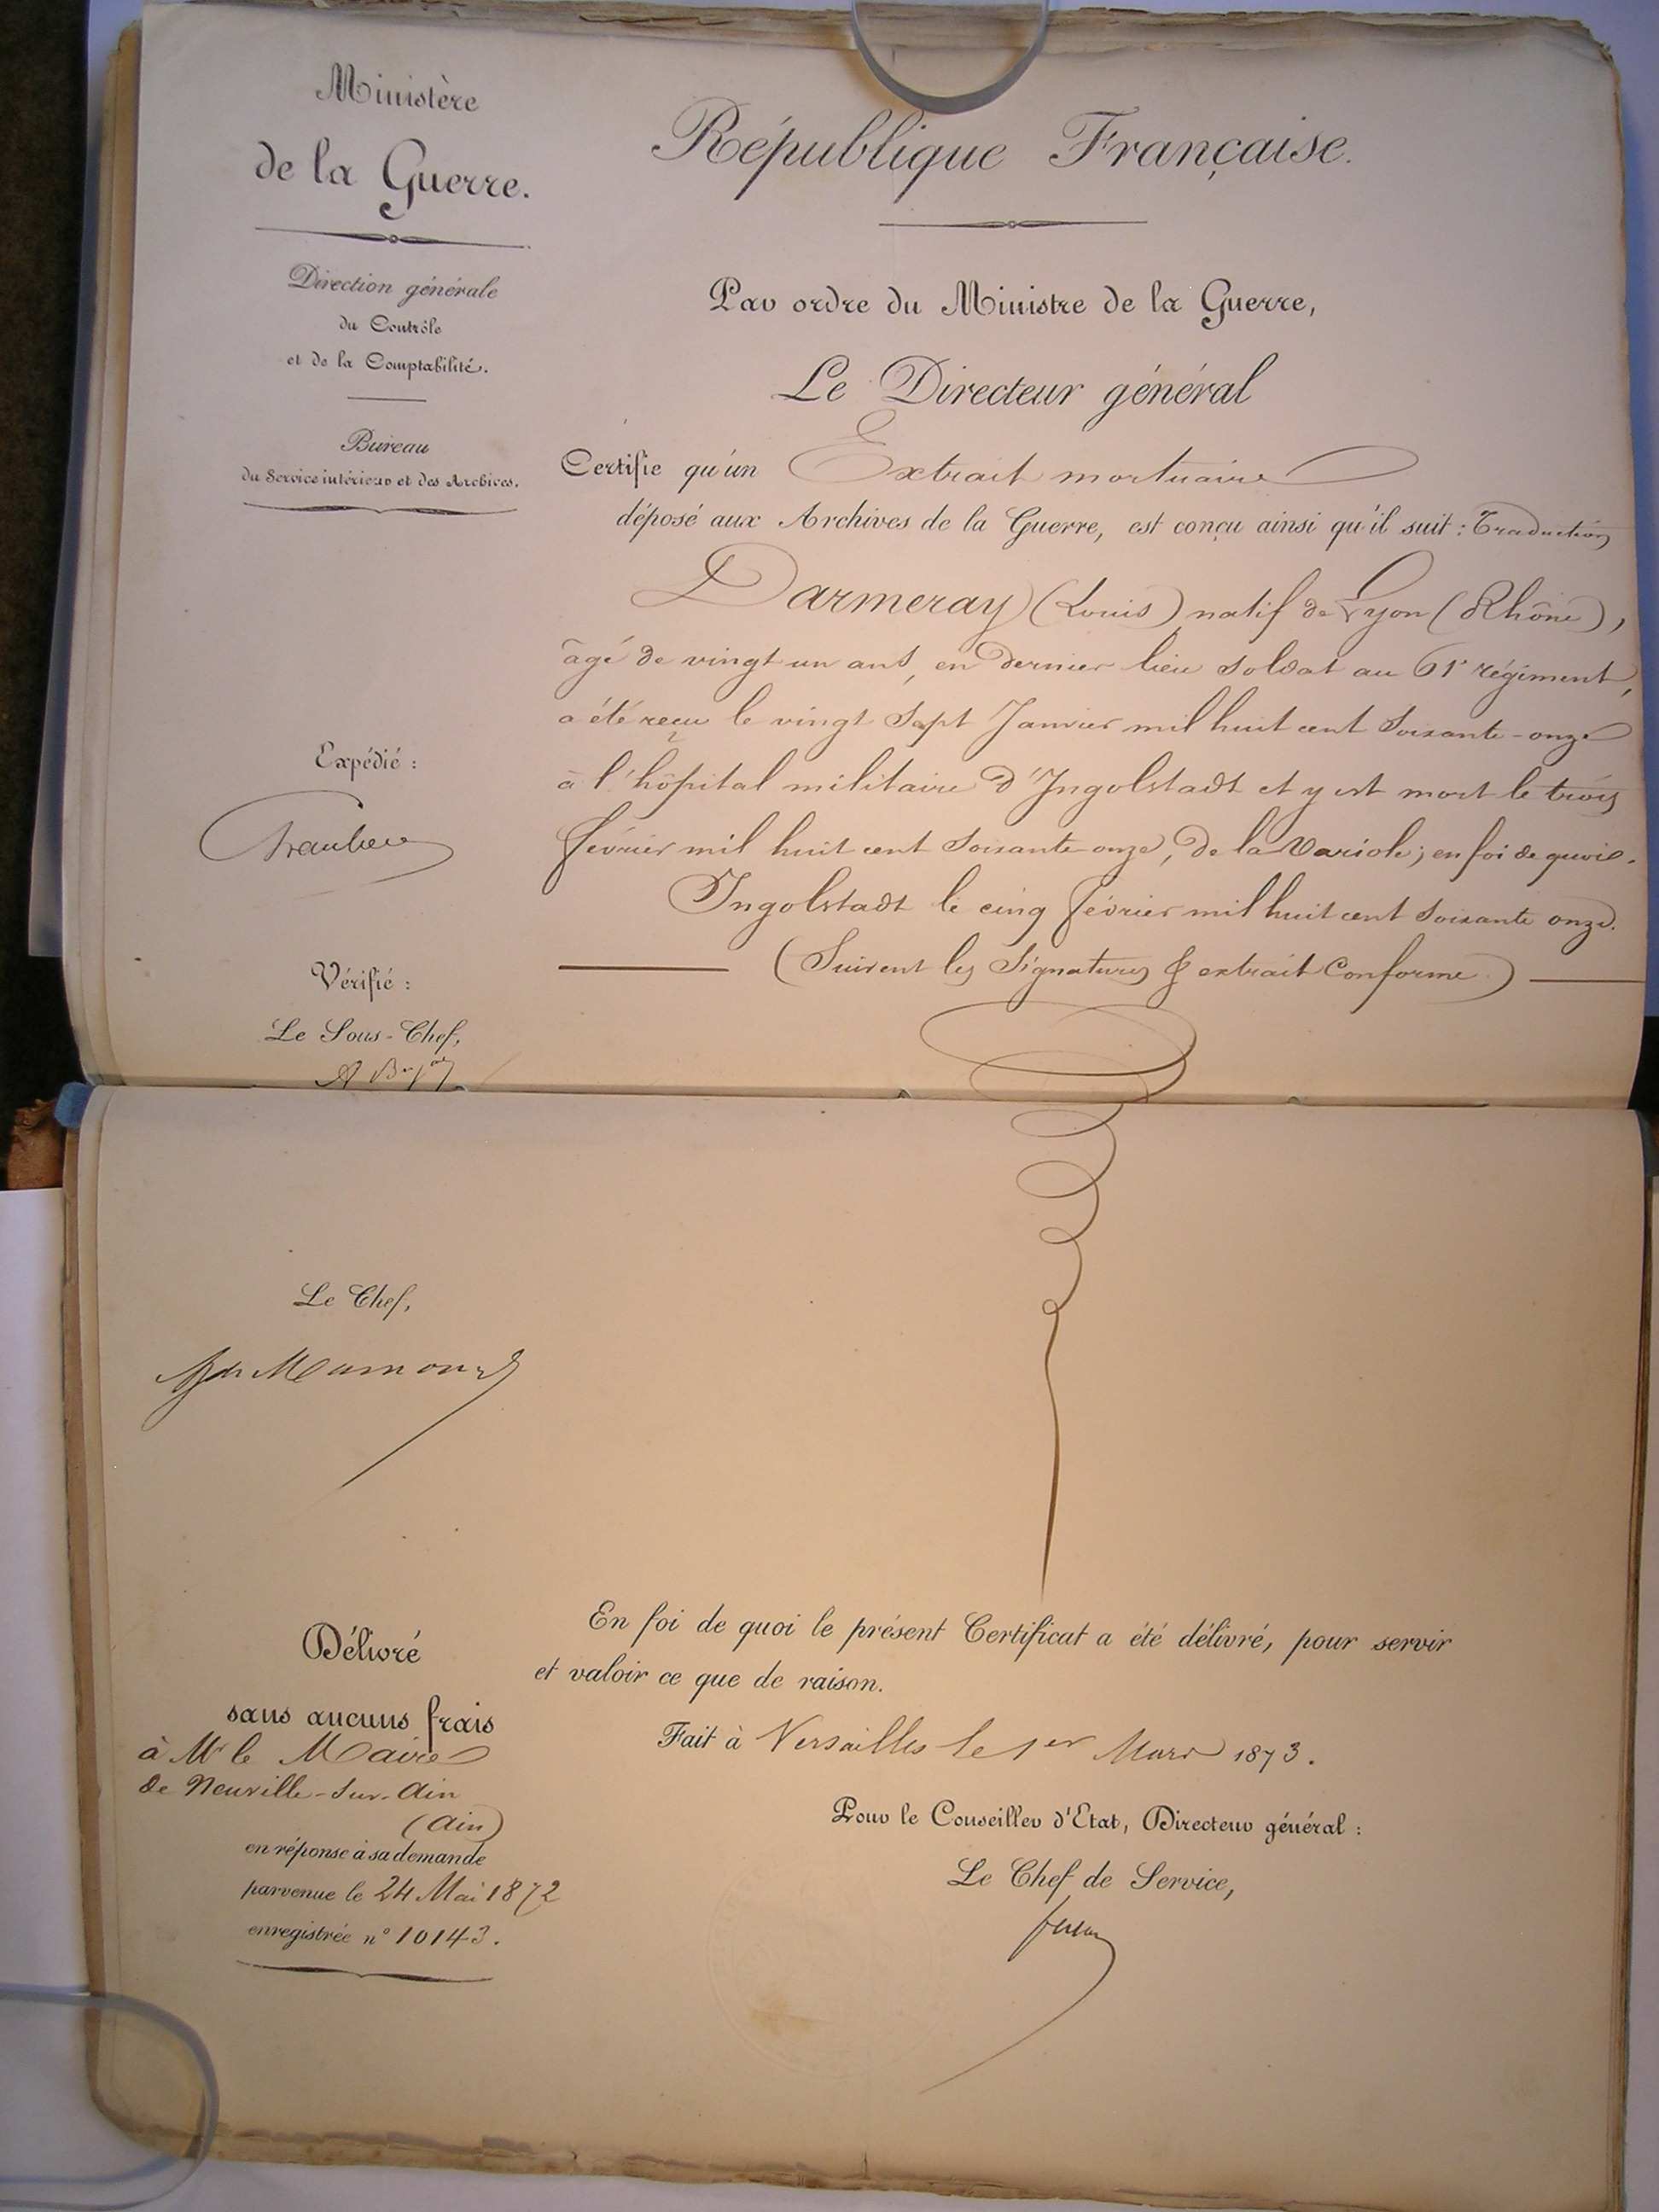 Ministère
de la Guerre.
Direction générale
du Contrôle
et de la Comptabilité.
Bureau
du Service intérieur et des Archives.
République Française.
Par ordre du Ministre de la Guerre,
Le Directeur général
Certifie qu'un Extrait mortuaire
déposé aux Archives de la Guerre, est conçu ainsi qu'il suit : Traduction
Darmeray (Louis) natif de Lyon (Rhône),
âgé de vingt un ans, en dernier lieu soldat au 61e régiment,
a été reçu le vingt Sept Janvier mil huit cent Soixante-onze
à l'hôpital militaire d'Ingolstadt et y est mort le trois
février mil huit cent Soixante onze, de la Variole; en foi de quoi.
Ingolstadt le cinq février mil huit cent Soixante onze.
(Suivent les Signatures & extrait Conforme.)
Expédié :
Vérifié :
Le Sous-Chef,
Le Chef,
Délivré
sans aucuns frais
à Mr le Maire
de Neuville-sur-Ain
(Ain)
en réponse à sa demande
parvenue le 24 Mai 1872
enregistrée n° 10143.
En foi de quoi le présent Certificat a été délivré, pour servir
et valoir ce que de raison.
Fait à Versailles le 1er Mars 1873.
Pour le Conseiller d'Etat, Directeur général :
Le Chef de Service,